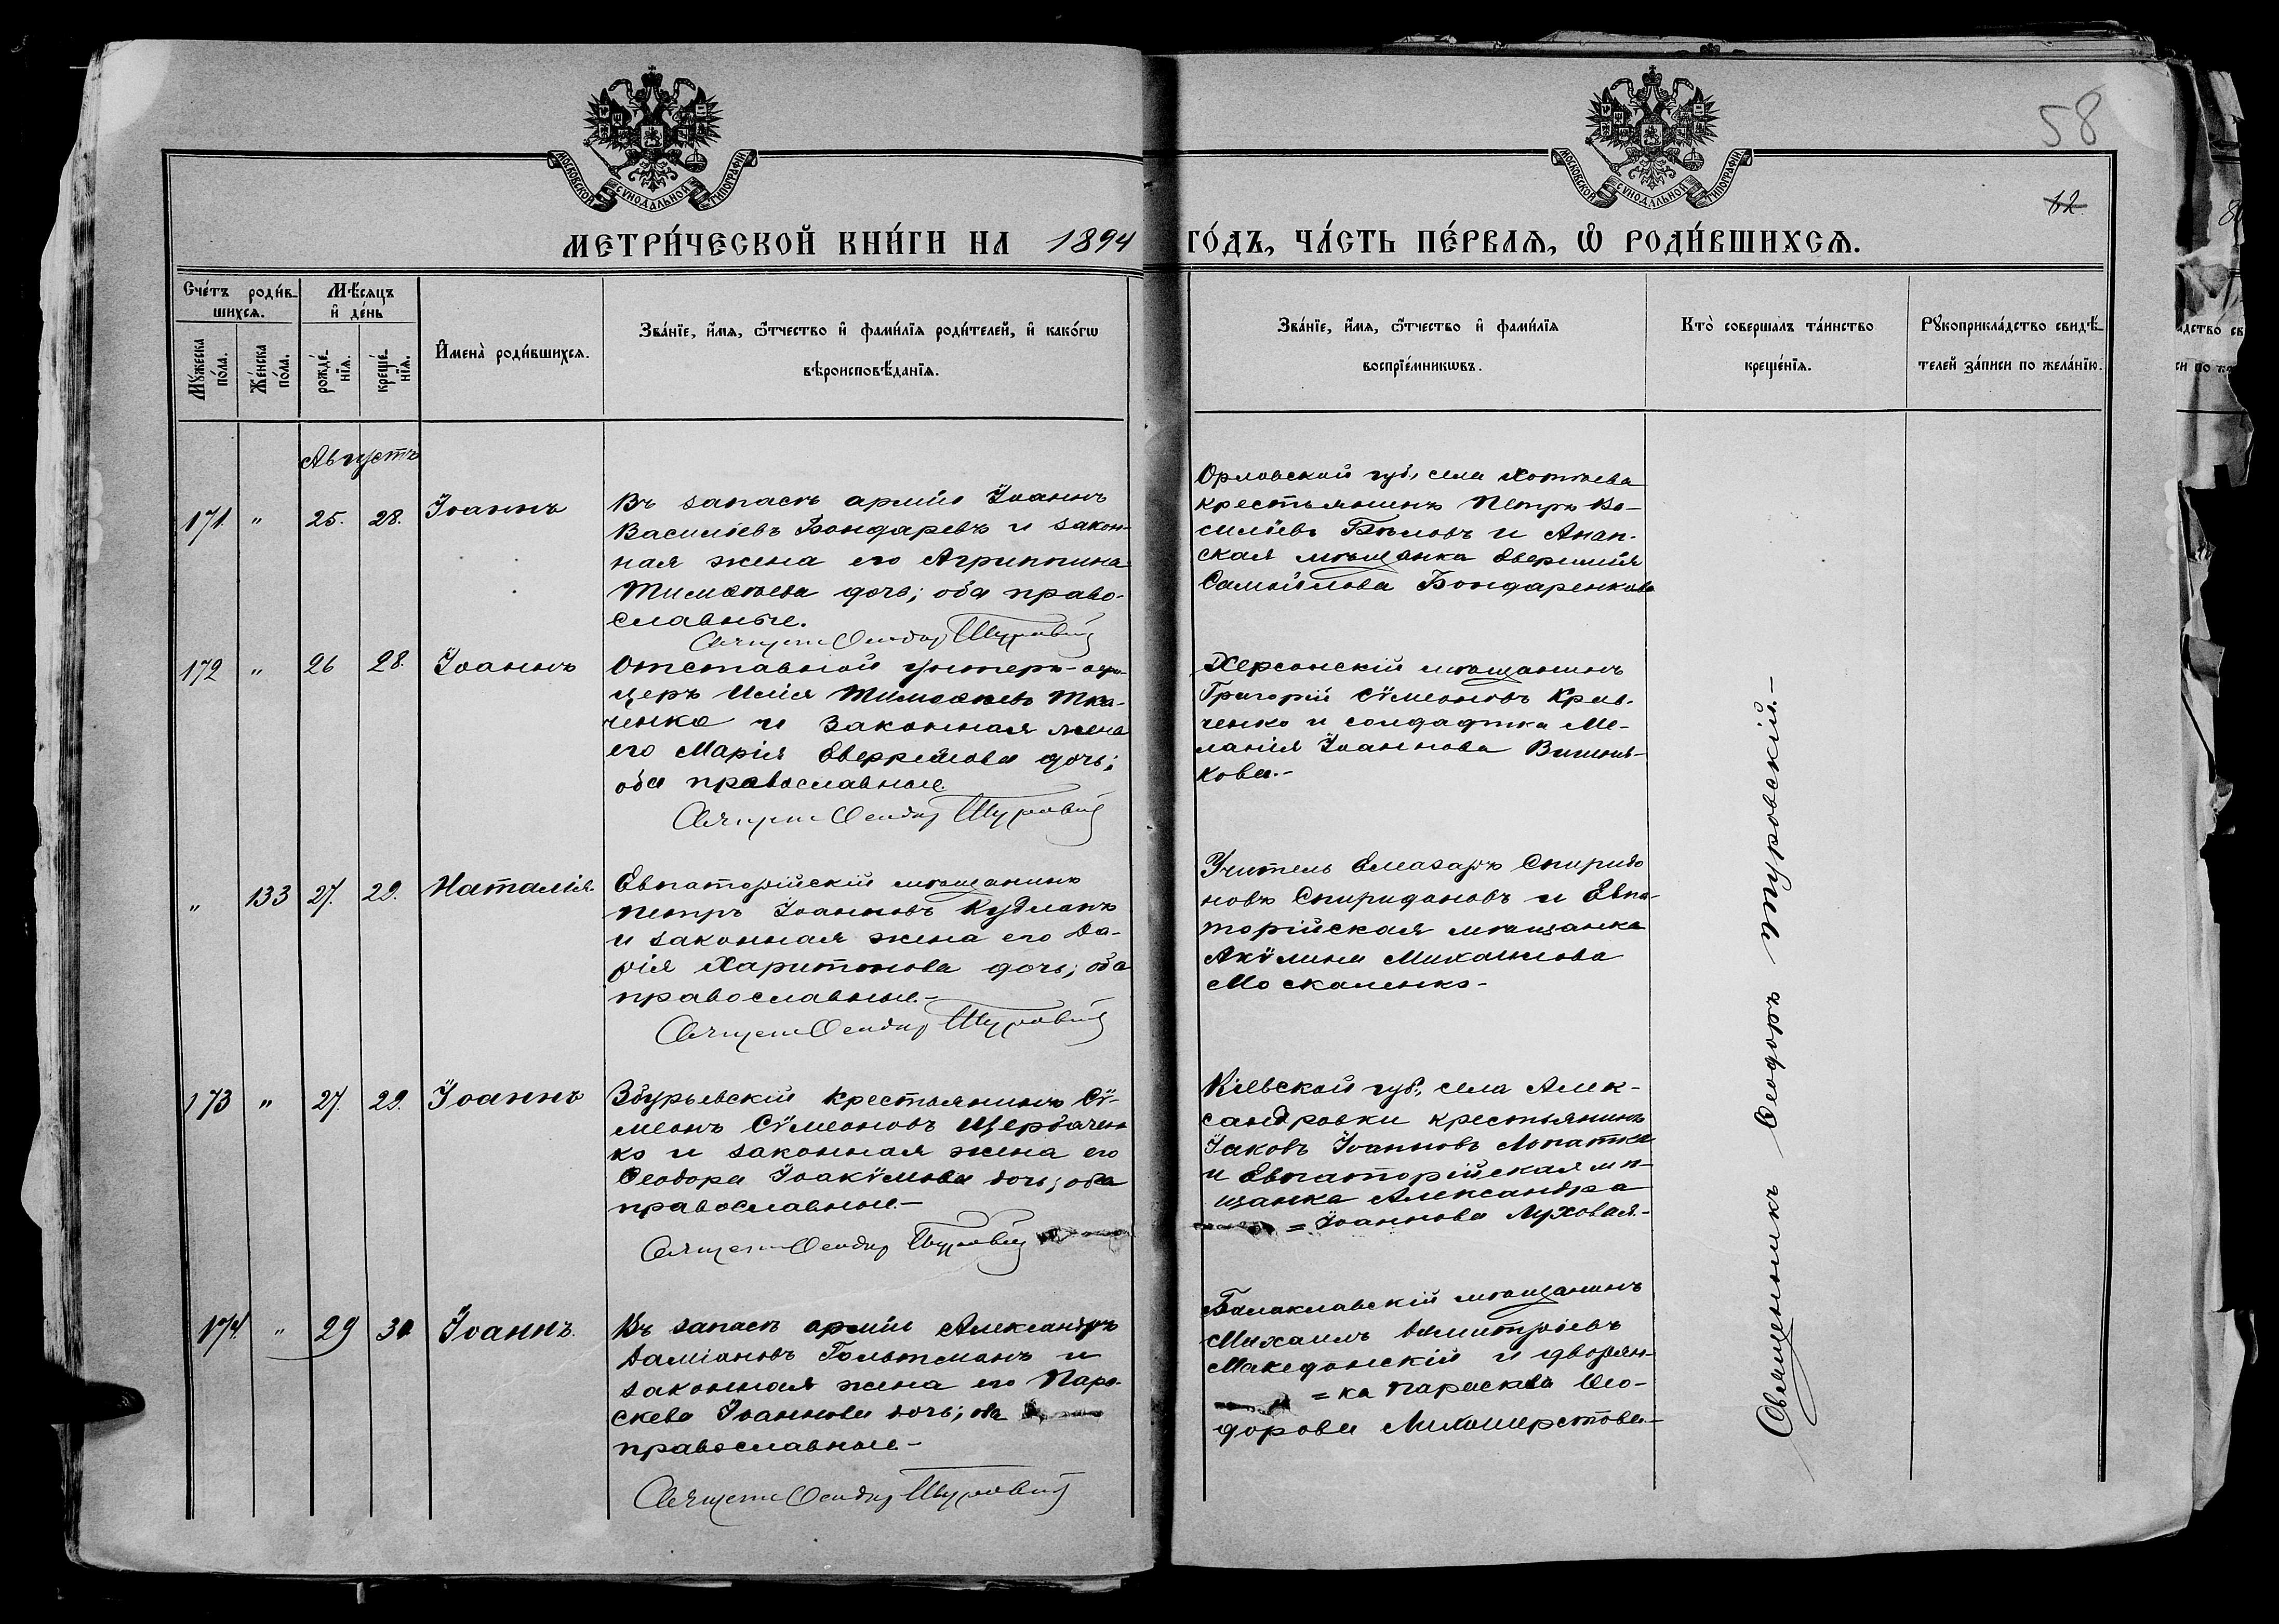 МОСКОВСКОЙ СѴНОДАЛЬНОЙ ТИПОГРАФІИ
МОСКОВСКОЙ СѴНОДАЛЬНОЙ ТИПОГРАФІИ
58
62.
МЕТРИ́ЧЕСКОЙ КНИ́ГИ НА 1894 ГО́ДЪ, ЧА́СТЬ ПЕ́РВАЯ, Ѡ РОДИ́ВШИХСЯ.
Сче́тъ роди́в-
шихся.
Мѣ́сяцъ
и де́нь
Му́жеска по́ла.
Же́нска по́ла.
рожде́-
нія.
креще́-
нія.
Имена̀ роди́вшихся.
Зва́ніе, и́мя, ѻ́тчество и фами́лія роди́телей, и како́гѡ
вѣроисповѣ́данія.
Зва́ніе, и́мя, ѻ́тчество и фами́лія
воспріе́мникѡвъ.
Кто̀ совершалъ та́инство
креще́нія.
Рꙋкоприкла́дство свидѣ́-
телей за́писи по жела́нію.
Августъ
171. " 25. 28. Іоаннъ
Въ запасѣ арміи Іоаннъ
Василіевъ Бондаревъ и закон-
ная жена его Агриппина
Тимоѳеева дочь; оба право-
славные.
Священ Ѳеодор Туровскій
Орловской губ., села Хотѣева
крестьянинъ Петръ Ва-
силіевъ Бѣловъ и Анап-
ская мѣщанка Евфимія
Самойлова Бондаренкова
172 " 26 28. Іоаннъ
Отставной унтеръ-офи-
церъ Илія Тимоѳеевъ Тка-
ченко и законная жена
его Марія Еверкіева дочь;
оба православные.
Священ Ѳеодор Туровскій
Херсонскій мѣщанинъ
Григорій Сѵмеоновъ Крав-
ченко и солдатка Ме-
ланія Іоаннова Вишня-
кова.-
" 133 27. 29. Наталія.
Евпаторійскій мѣщанинъ
Петръ Іоанновъ Кудланъ
и законная жена его Да-
рія Харитонова дочь; оба
православные.-
Священ Ѳеодор Туровскій
Учитель Елеазаръ Спиридо
новъ Спиридоновъ и Евпа-
торійская мѣщанка
Акѵлина Михаилова
Москаленко-
173 " 27. 29. Іоаннъ
Збурьевскій крестьянинъ Сѵ-
меонъ Сѵмеоновъ Щербачен
ко и законная жена его
Ѳеодора Іоакѵмова дочь; оба
православные.-
Священ Ѳеодор Туровскій
Кіевской губ., села Алек-
сандровки крестьянинъ
Іаковъ Іоанновъ Лопатка
и Евпаторійская мѣ-
щанка Александра
= Іоаннова Луховая.-
174. " 29 30. Іоаннъ.
Въ запасѣ арміи Александръ
Даміановъ Гольтманъ и
законная жена его Пара-
скева Іоаннова дочь; оба
православные-
Священ Ѳеодор Туровскій
Балаклавскій мѣщанинъ
Михаилъ Димитріевъ
Македонскій и дворян-
= ка Параскева Ѳео-
дорова Лихошерстова-
Священникъ Ѳеодоръ Туровскій.-